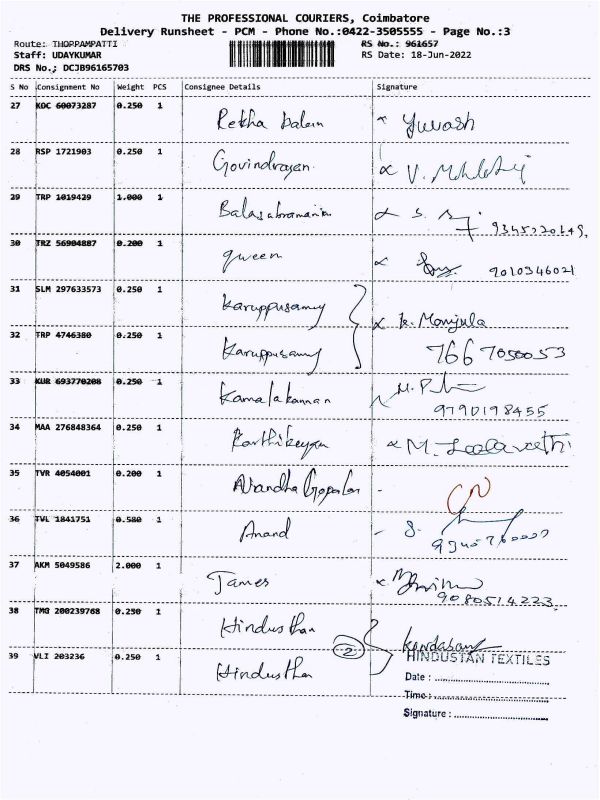 THE PROFESSIONAL COURIERS, Coimbatore
Delivery Runsheet - PCM - Phone No.:0422-3505555 - Page No.:3
Route: THOPPAMPATTI RS No.: 961657
Staff: UDAYKUMAR RS Date: 18-Jun-2022
DRS No.; DCJB96165703
S No Consignment No Weight PCS Consignee Details Signature
27 KOC 60073287 0.250 1 Rekha x Yuvash
28 RSP 1721903 0.250 1 Govindrajan x V.
29 TRP 1019429 1.000 1 Balasubramanian x S.
30 TRZ 56904887 0.200 1 queen x
9010346021
31 SLM 297633573 0.250 1 Karuppusamy
x K. Manjula
32 TRP 4746380 0.250 1 Karuppusamy 7667050053
33 KUR 693770208 0.250 1 Kamalakannan
9790198455
34 MAA 276848364 0.250 1 Karthikeyan x M. Leelavathi
35 TVR 4054001 0.200 1 Anandha Gopalan -
36 TVL 1841751 0.580 1 Anand - S.
37 AKM 5049586 2.000 1 James x
9080514223
38 TMG 200239768 0.250 1 Hindusthan
2 Kandasamy
39 VLI 203236 0.250 1 Hindusthan HINDUSTAN TEXTILES
Date :
Time:
Signature :